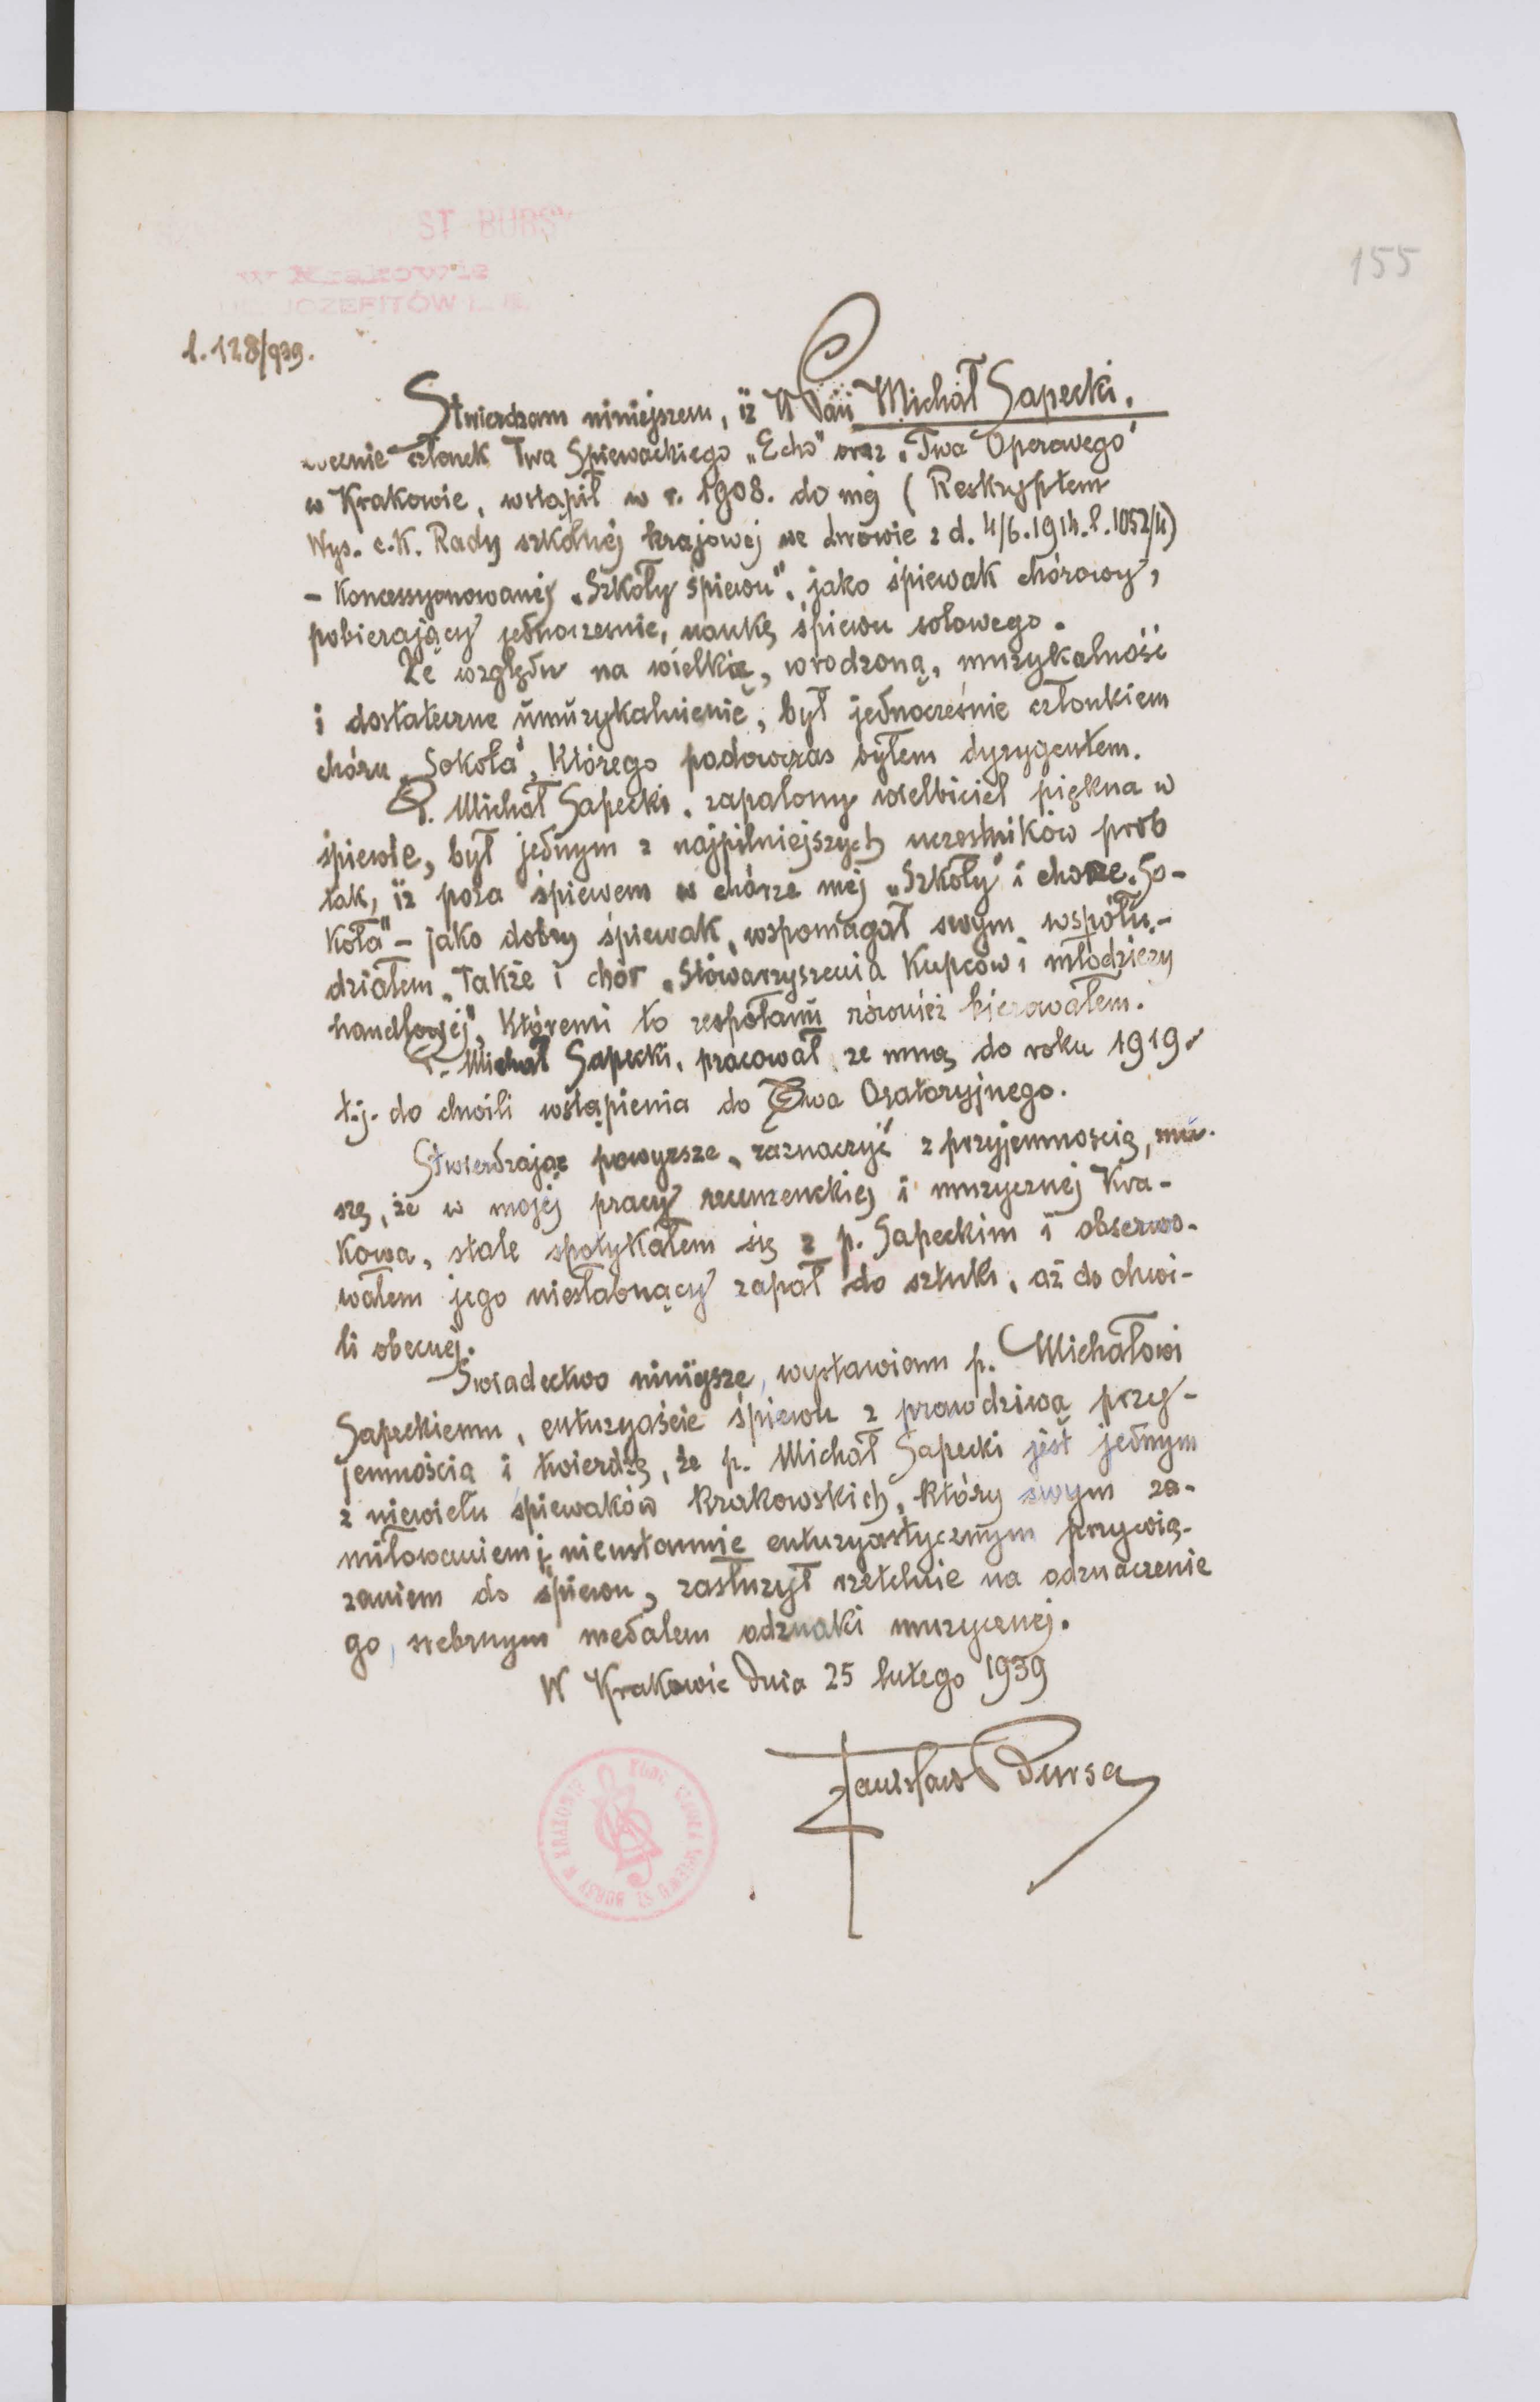 ST. BURSY
w Krakowie
JÓZEFITÓW L.
155
l. 128/939.
Stwierdzam niniejszem, iż W Pan Michał Sapecki,
obecnie członek Twa Śpiewackiego „Echo" oraz „Twa Operowego"
w Krakowie, wstąpił w r. 1908. do mej (Reskryptem
Wys. c.K. Rady szkolnej krajowej we Lwowie z d. 4/6.1914.l.1052/4)
- Koncessyonowanej „Szkoły śpiewu", jako śpiewak chórowy,
pobierający jednocześnie, naukę śpiewu solowego.
Ze względu na wielką, wrodzoną, muzykalność
i dostateczne umuzykalnienie, był jednocześnie członkiem
chóru „Sokoła", Którego podówczas byłem dyrygentem.
P. Michał Sapecki, zapalony wielbiciel piękna w
śpiewie, był jednym z najpilniejszych uczestników prób
tak, iż poza śpiewem w chórze mej „Szkoły" i chórze „So-
koła" - jako dobry śpiewak, wspomagał swym współu-
działem, także i chór „Stowarzyszenia Kupców i młodzieży
handlowej", Któremi to zespołami również kierowałem.
P. Michał Sapecki, pracował ze mną do roku 1919.
t.j. do chwili wstąpienia do Twa Oratoryjnego.
Stwierdzając powyższe, zaznaczyć z przyjemnością, mu-
szę, że w mojej pracy recenzenckiej i muzycznej Kra-
kowa, stale spotykałem się z p. Sapeckim i obserwo-
wałem jego niesłabnący zapał do sztuki, aż do chwi-
li obecnej.
Świadectwo niniejsze, wystawiam p. Michałowi
Sapeckiemu, entuzyaście śpiewu z prawdziwą przy-
jemnością i twierdzę, że p. Michał Sapecki jest jednym
z niewielu śpiewaków Krakowskich, który swym za-
miłowaniem i nieustannie entuzyastycznym przywią-
zaniem do śpiewu, zasłużył rzetelnie na odznaczenie
go, srebrnym medalem odznaki muzycznej.
W Krakowie dnia 25 lutego 1939
Stanisław Bursa
SZKOŁA ŚPIEWU ST. BURSY W KRAKOWIE